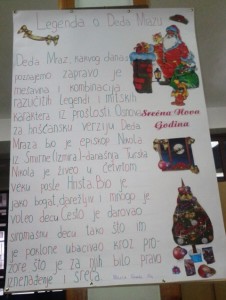 Legenda o Deda Mrazu
Deda Mraz, kakvog danas
poznajemo zapravo je
mešavina i kombinacija
različitih legendi i mitskih
karaktera iz prošlosti. Osnova
za hrišćansku verziju Deda
Mraza bio je episkop Nikola
iz Smirne (Izmira)-današnja Turska
Nikola je živeo u četvrtom
veku posle Hrista. Bio je
jako bogat, darežljiv i mnogo je
voleo decu. Često je darovao
siromašnu decu tako što im
je poklone ubacivao kroz pro-
zore što je za njih bilo pravo
iznenađenje i sreća.
Srećna Nova
Godina